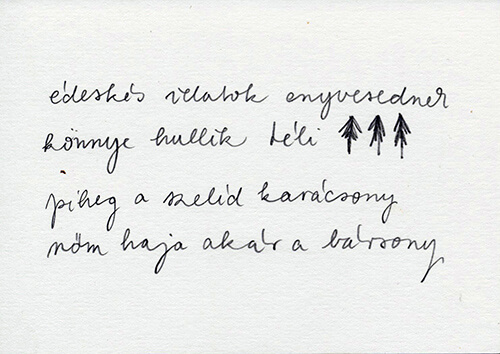 édeskés illatok enyvesednek
könnye hullik téli
piheg a szelíd karácsony
nőm haja akár a bársony